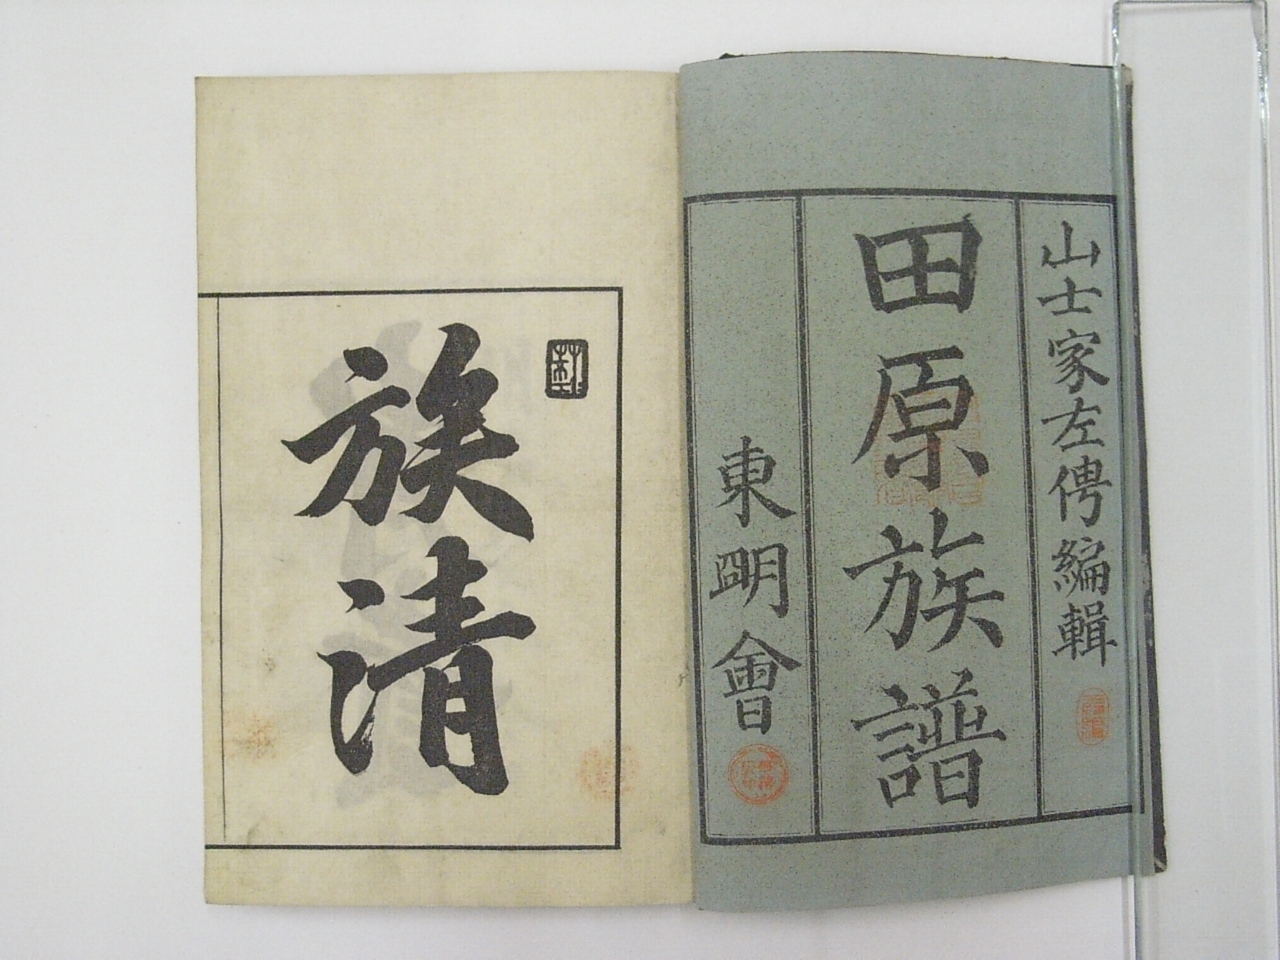 山士家左俜編輯
田原族譜
東朙會
族清